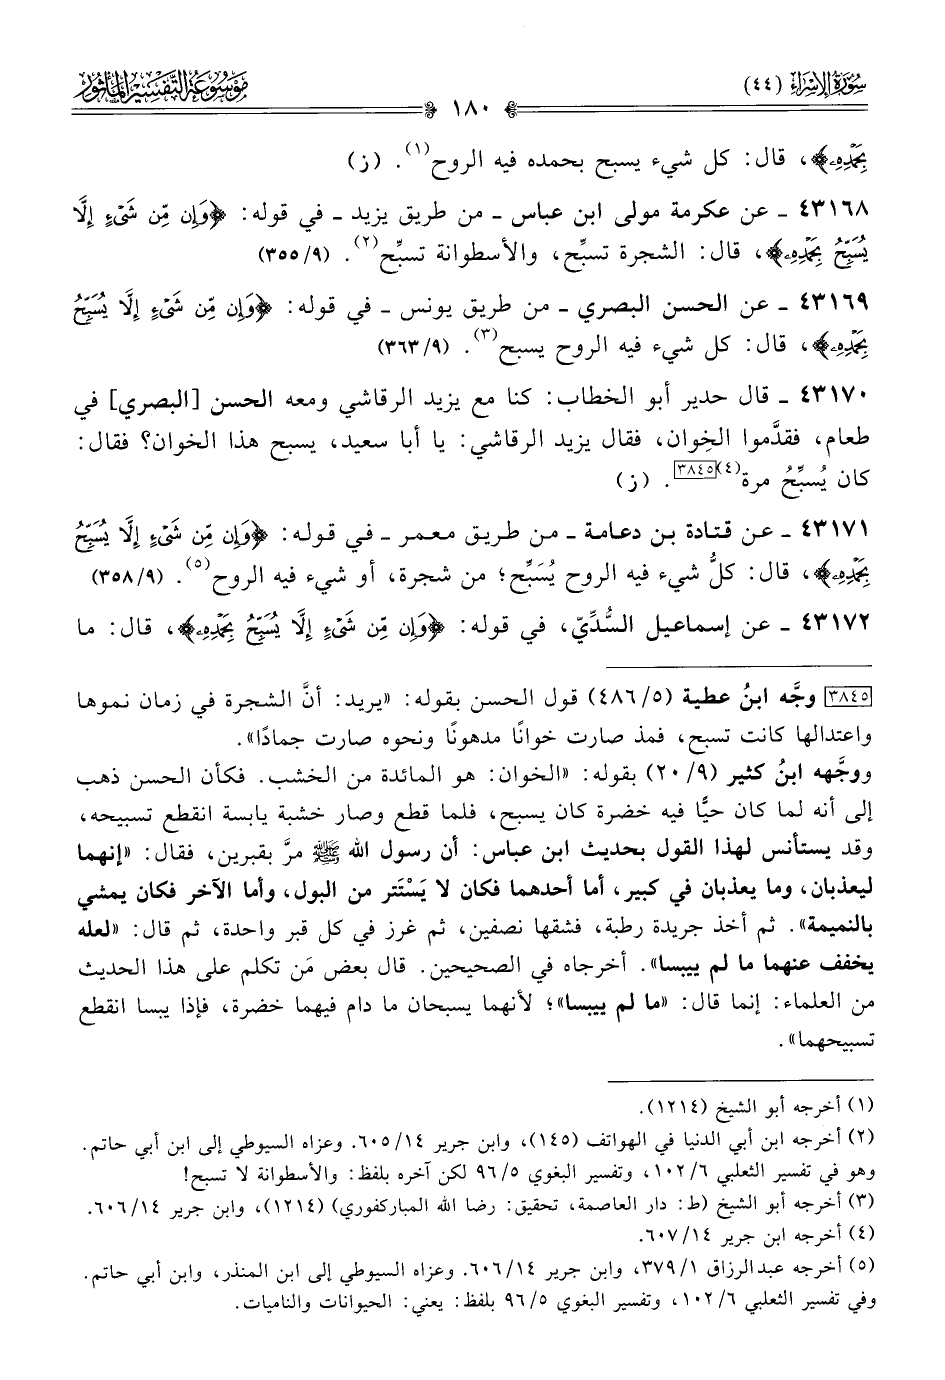 سُورَةُ الإِسْرَاء (٤٤)
١٨٠
مَوْسُوعَة التَّفْسِير المَأْثُور
بِحَمْدِهِۦ﴾، قال: كل شيء يسبح بحمده فيه الروح(١). (ز)
٤٣١٦٨ ـ عن عكرمة مولى ابن عباس ـ من طريق يزيد ـ في قوله: ﴿وَإِن مِّن شَىْءٍ إِلَّا
يُسَبِّحُ بِحَمْدِهِۦ﴾، قال: الشجرة تسبِّح، والأسطوانة تسبِّح(٢). (٣٥٥/٩)
٤٣١٦٩ ـ عن الحسن البصري ـ من طريق يونس ـ في قوله: ﴿وَإِن مِّن شَىْءٍ إِلَّا يُسَبِّحُ
بِحَمْدِهِۦ﴾، قال: كل شيء فيه الروح يسبح(٣). (٣٦٣/٩)
٤٣١٧٠ ـ قال حدير أبو الخطاب: كنا مع يزيد الرقاشي ومعه الحسن [البصري] في
طعام، فقدَّموا الخِوان، فقال يزيد الرقاشي: يا أبا سعيد، يسبح هذا الخوان؟ فقال:
كان يُسبِّحُ مرة(٤)[٣٨٤٥]. (ز)
٤٣١٧١ ـ عن قتادة بن دعامة ـ من طريق معمر ـ في قوله: ﴿وَإِن مِّن شَىْءٍ إِلَّا يُسَبِّحُ
بِحَمْدِهِۦ﴾، قال: كلُّ شيء فيه الروح يُسَبِّح؛ من شجرة، أو شيء فيه الروح(٥). (٣٥٨/٩)
٤٣١٧٢ ـ عن إسماعيل السُّدِّيّ، في قوله: ﴿وَإِن مِّن شَىْءٍ إِلَّا يُسَبِّحُ بِحَمْدِهِۦ﴾، قال: ما
[٣٨٤٥] وجَّه ابنُ عطية (٤٨٦/٥) قول الحسن بقوله: «يريد: أنَّ الشجرة في زمان نموها
واعتدالها كانت تسبح، فمذ صارت خوانًا مدهونًا ونحوه صارت جمادًا».
ووجَّهه ابنُ كثير (٢٠/٩) بقوله: «الخوان: هو المائدة من الخشب. فكأن الحسن ذهب
إلى أنه لما كان حيًّا فيه خضرة كان يسبح، فلما قطع وصار خشبة يابسة انقطع تسبيحه،
وقد يستأنس لهذا القول بحديث ابن عباس: أن رسول الله ﷺ مرَّ بقبرين، فقال: «إنهما
ليعذبان، وما يعذبان في كبير، أما أحدهما فكان لا يَسْتَتر من البول، وأما الآخر فكان يمشي
بالنميمة». ثم أخذ جريدة رطبة، فشقها نصفين، ثم غرز في كل قبر واحدة، ثم قال: «لعله
يخفف عنهما ما لم ييبسا». أخرجاه في الصحيحين. قال بعض مَن تكلم على هذا الحديث
من العلماء: إنما قال: «ما لم ييبسا»؛ لأنهما يسبحان ما دام فيهما خضرة، فإذا يبسا انقطع
تسبيحهما».
(١) أخرجه أبو الشيخ (١٢١٤).
(٢) أخرجه ابن أبي الدنيا في الهواتف (١٤٥)، وابن جرير ٦٠٥/١٤. وعزاه السيوطي إلى ابن أبي حاتم.
وهو في تفسير الثعلبي ١٠٢/٦، وتفسير البغوي ٩٦/٥ لكن آخره بلفظ: والأسطوانة لا تسبح!
(٣) أخرجه أبو الشيخ (ط: دار العاصمة، تحقيق: رضا الله المباركفوري) (١٢١٤)، وابن جرير ٦٠٦/١٤.
(٤) أخرجه ابن جرير ٦٠٧/١٤.
(٥) أخرجه عبدالرزاق ٣٧٩/١، وابن جرير ٦٠٦/١٤. وعزاه السيوطي إلى ابن المنذر، وابن أبي حاتم.
وفي تفسير الثعلبي ١٠٢/٦، وتفسير البغوي ٩٦/٥ بلفظ: يعني: الحيوانات والناميات.